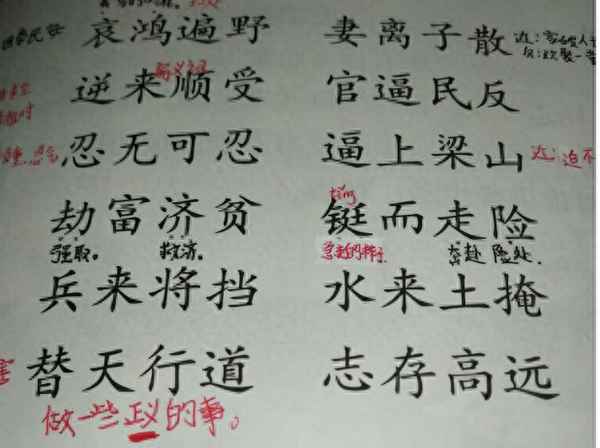 哀鸿遍野 妻离子散
逆来顺受 官逼民反
忍无可忍 逼上梁山 近:迫不
劫富济贫 铤而走险 tǐng
强取。 救济。 急走的样子 奔赴 险处.
兵来将挡 水来土掩
替天行道 志存高远
做一些正义的事。